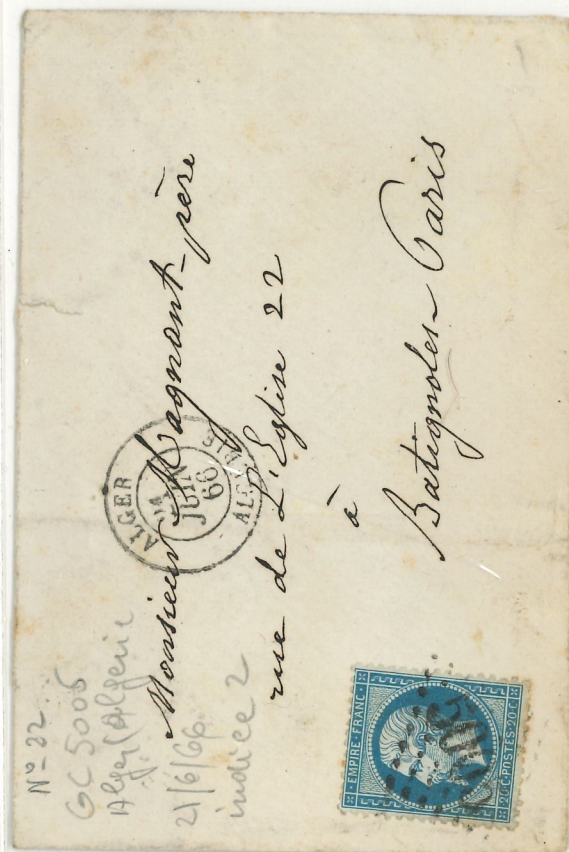 N° 22
GC 5005
Alger (Algérie
21/6/66
indice 2
Monsieur Magnant-père
rue de L'Eglise 22
à
Batignoles-Paris
ALGER
JUIN
66
ALGERIE
EMPIRE·FRANC·
20·C·POSTES·20·C